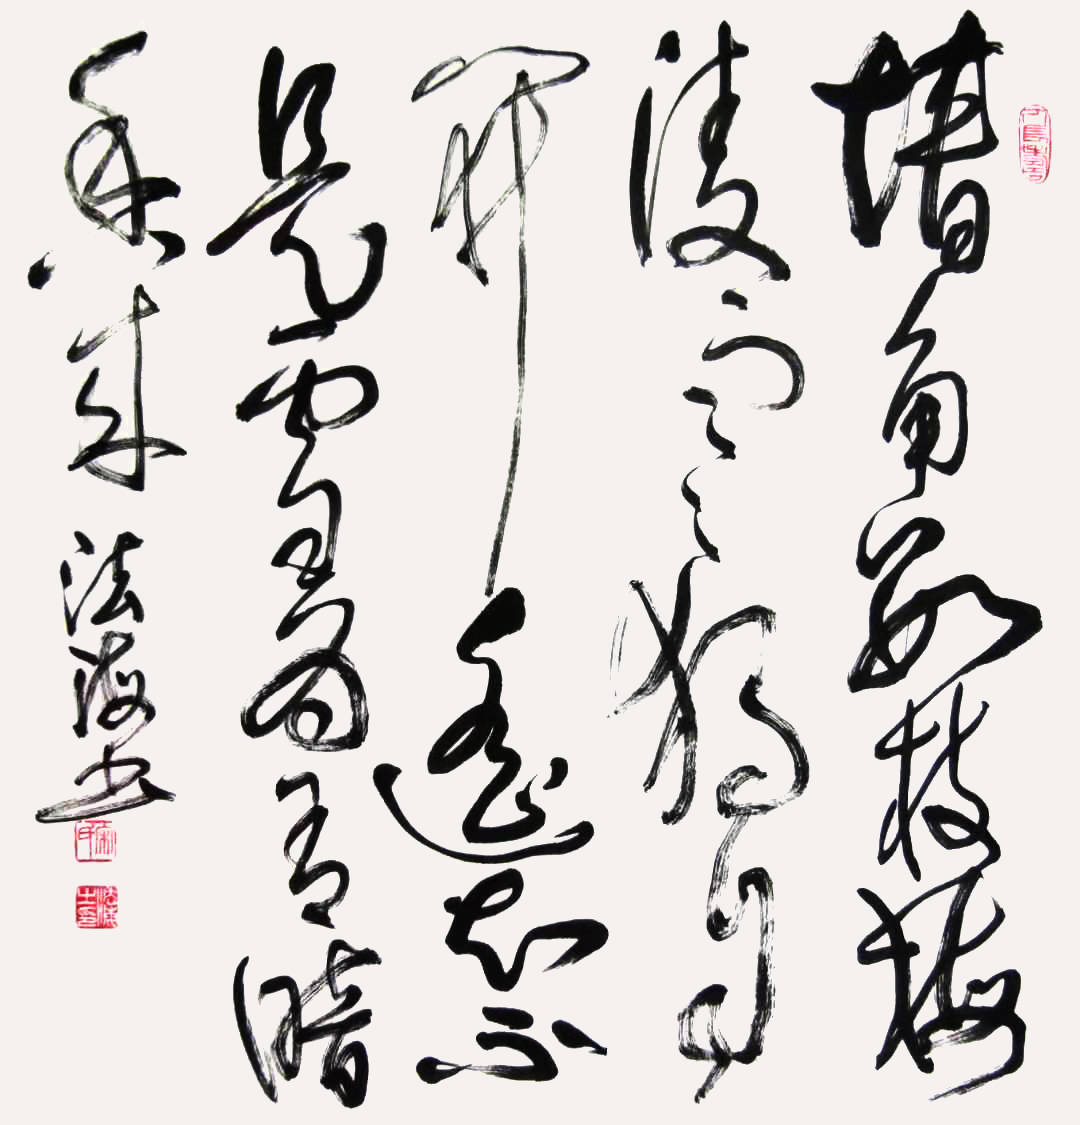 墙角數枝梅
凌寒獨自
開遥知不
是雪為有暗
香来
法海书